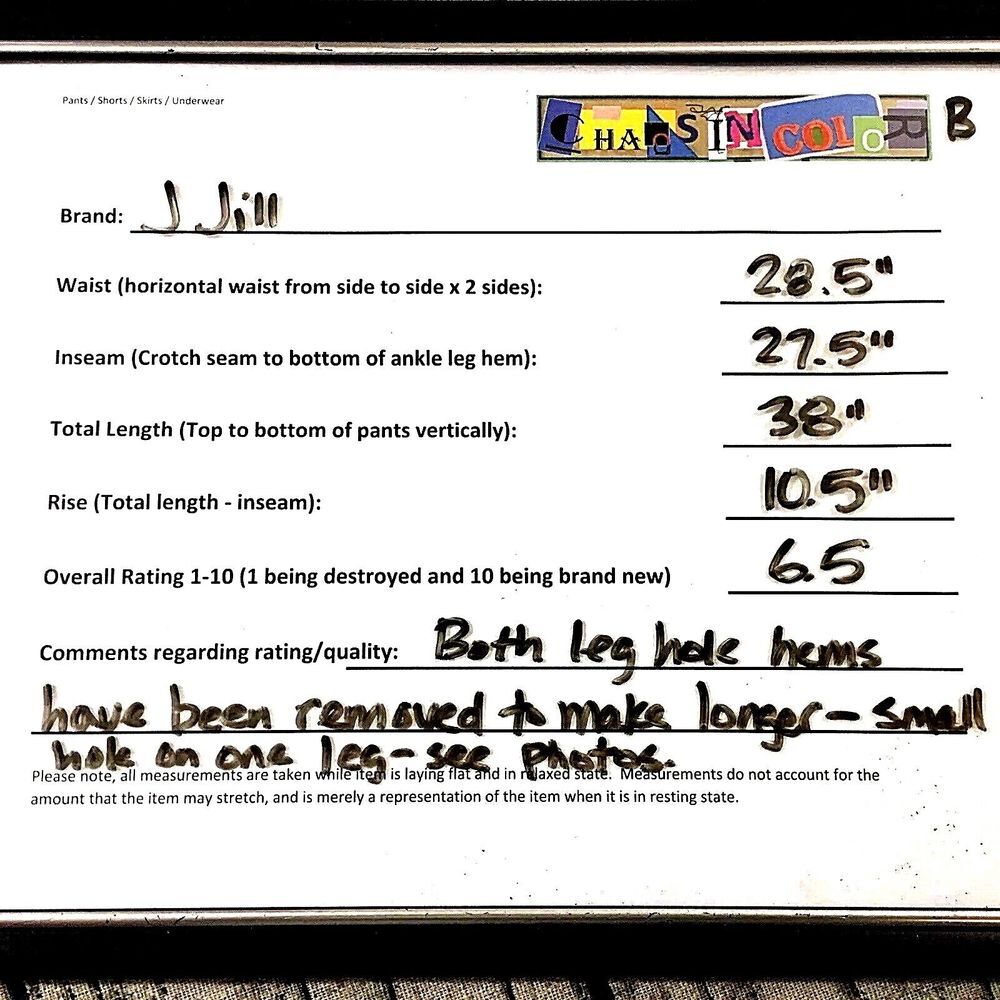 Pants / Shorts / Skirts / Underwear
CHAOS IN COLOR B
Brand: J Jill
Waist (horizontal waist from side to side x 2 sides): 28.5"
Inseam (Crotch seam to bottom of ankle leg hem): 27.5"
Total Length (Top to bottom of pants vertically): 38"
Rise (Total length - inseam): 10.5"
Overall Rating 1-10 (1 being destroyed and 10 being brand new) 6.5
Comments regarding rating/quality: Both leg hole hems
have been removed to make longer - small
hole on one leg - see photos.
Please note, all measurements are taken while item is laying flat and in relaxed state. Measurements do not account for the
amount that the item may stretch, and is merely a representation of the item when it is in resting state.